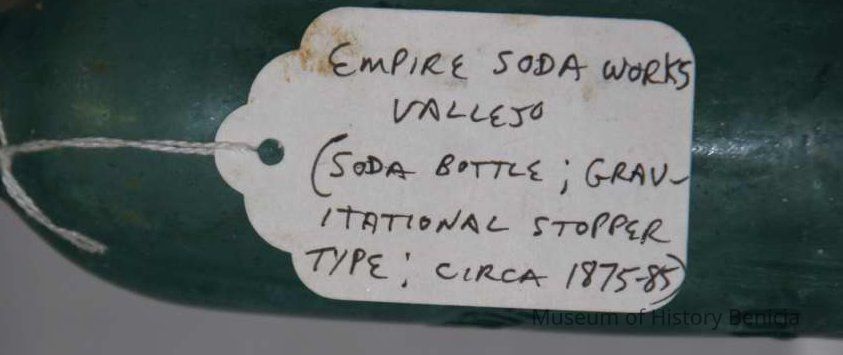 EMPIRE SODA WORKS
VALLEJO
(SODA BOTTLE; GRAV-
ITATIONAL STOPPER
TYPE; CIRCA 1875-85)
Museum of History Benicia